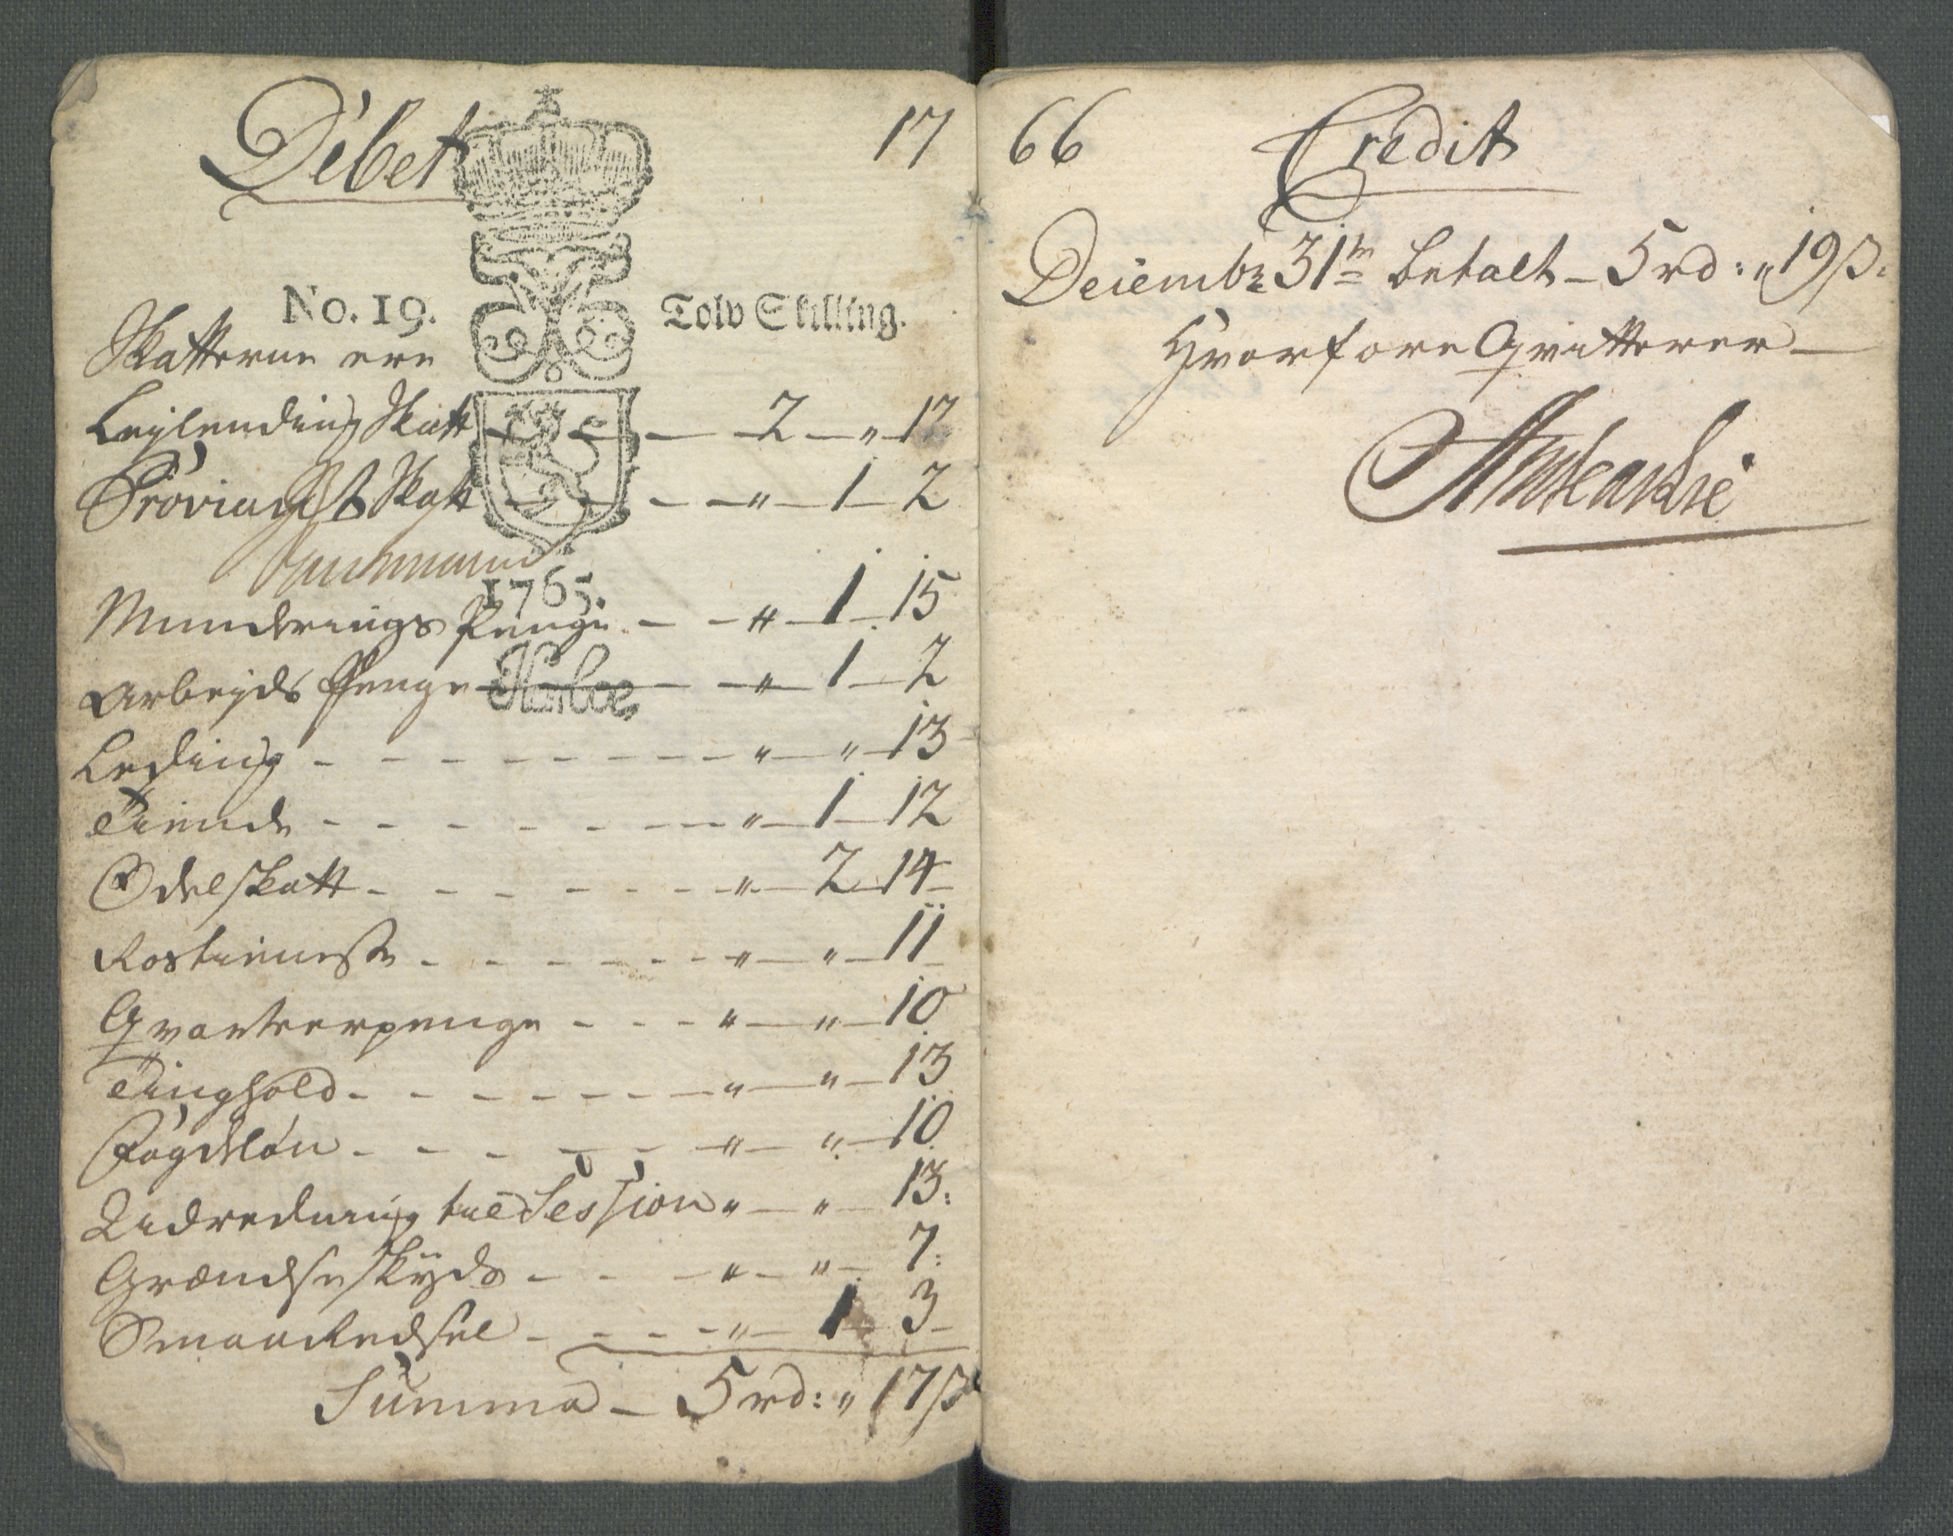 Debet 17
No. 19. Tolv Skilling.
Skatterne ere
Leylending Skatt - - - 2 - " 17
Proviant Skatt - - - " - 1 - 2
1765.
Munderings Penge - - " - 1 - 15
Arbejds Penge - - - " - 1 - 2
Leding - - - - - - - " - " - 13
Tiende - - - - - - " - 1 - 12
Odelskatt - - - - - - " - 2 - 14
Rostieneste - - - - - - " - " - 11
Qvarteerpenge - - - " - " - 10
Tinghold - - - - - - " - " - 13
Fogdeløn - - - - - - " - " - 10
Udredning til Session " - " - 13:
Grændseskyds - - - " - " - 7:
Smaae Redsel - - - - " - 1 - 3
Summa - 5 rd: " 17 ß
66 Credit
Decembr 31te betalt - 5 rd: " 19 ß:
Hvorfore Qvitterer